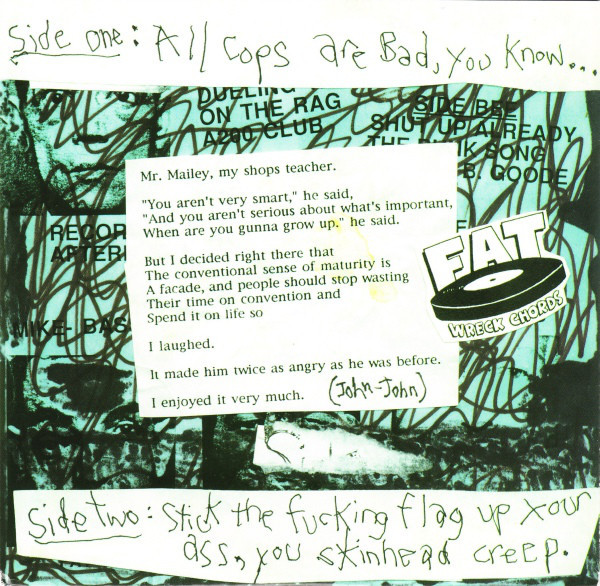 Side one: All Cops are Bad, you Know...
DUELING
ON THE RAG
A200 CLUB
SIDE BEE
SHUT UP ALREADY
THE PUNK SONG
B. GOODE
Mr. Mailey, my shops teacher.
"You aren't very smart," he said,
"And you aren't serious about what's important,
When are you gunna grow up." he said.
But I decided right there that
The conventional sense of maturity is
A facade, and people should stop wasting
Their time on convention and
Spend it on life so
I laughed.
It made him twice as angry as he was before.
I enjoyed it very much. (John-John)
RECOR
ARTERI
MIKE- BAS
FAT
WRECK CHORDS
Side two: Stick the fucking flag up your
ass, you skinhead creep.